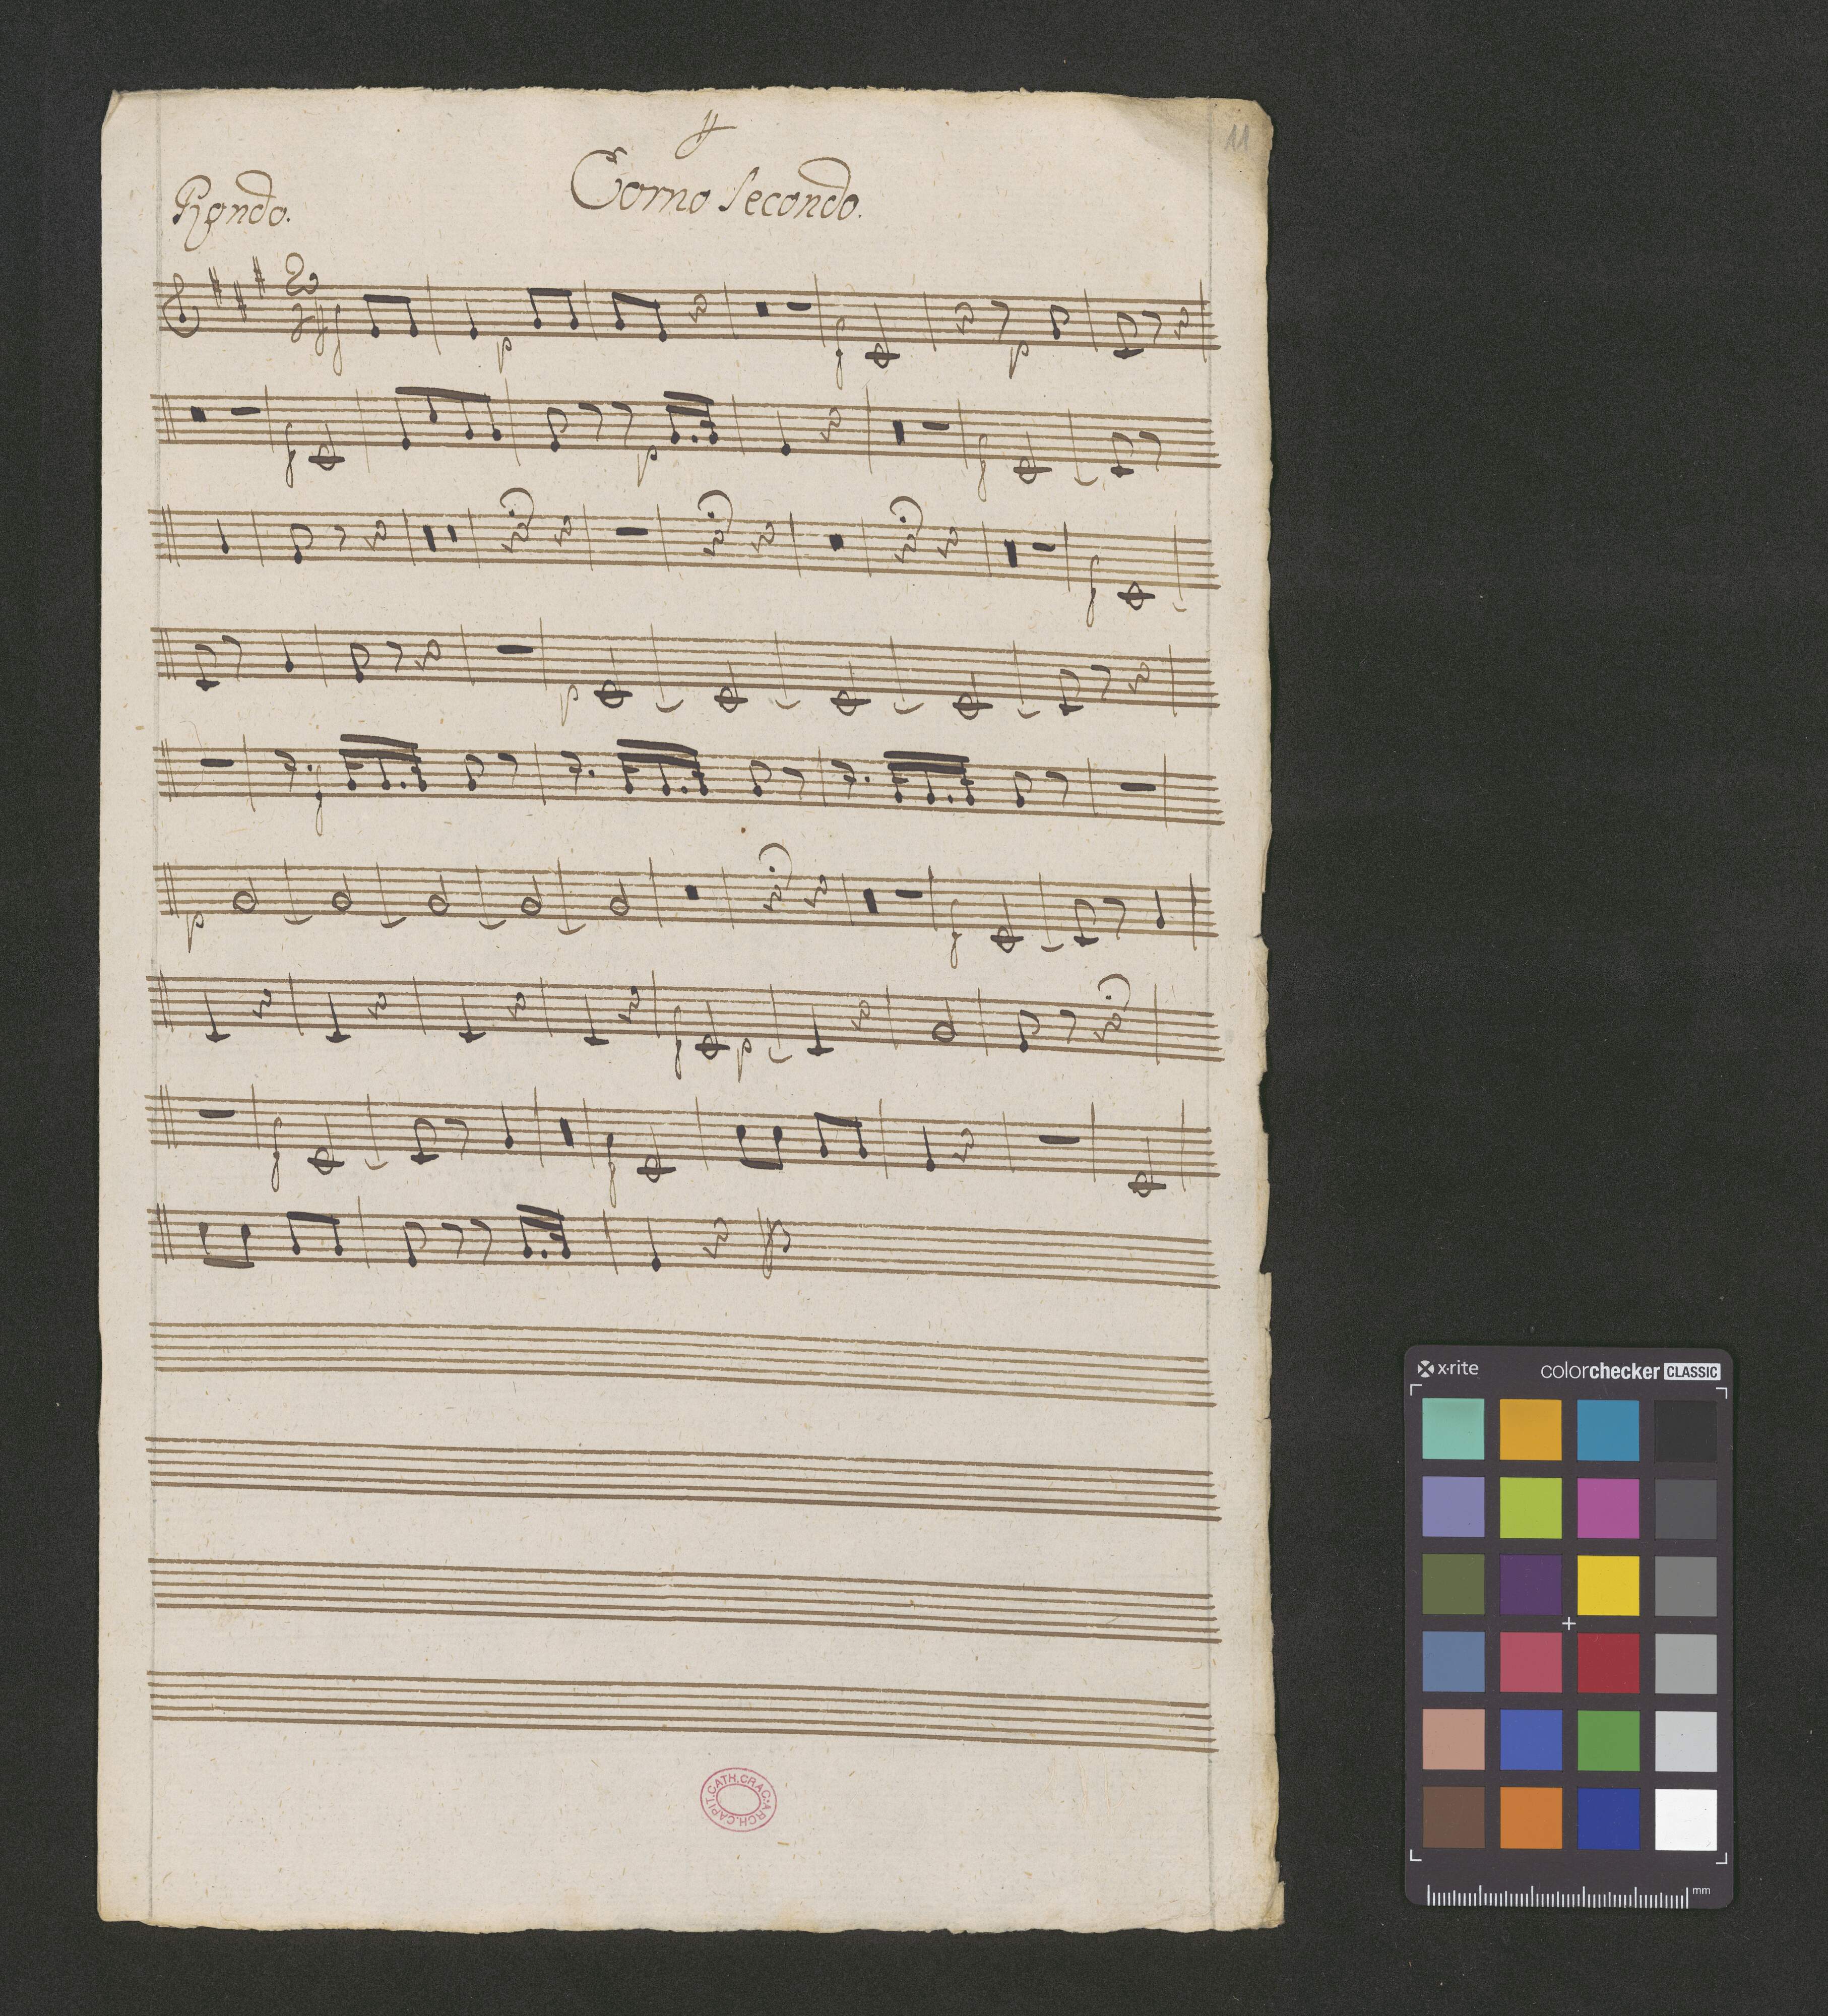 11
Corno Secondo.
Rondo.
2/4 f p f p
f p f
f
p
f
p f
f p
f f
CAPIT.CATH.CRAC.ARCH.
x·rite colorchecker CLASSIC
mm